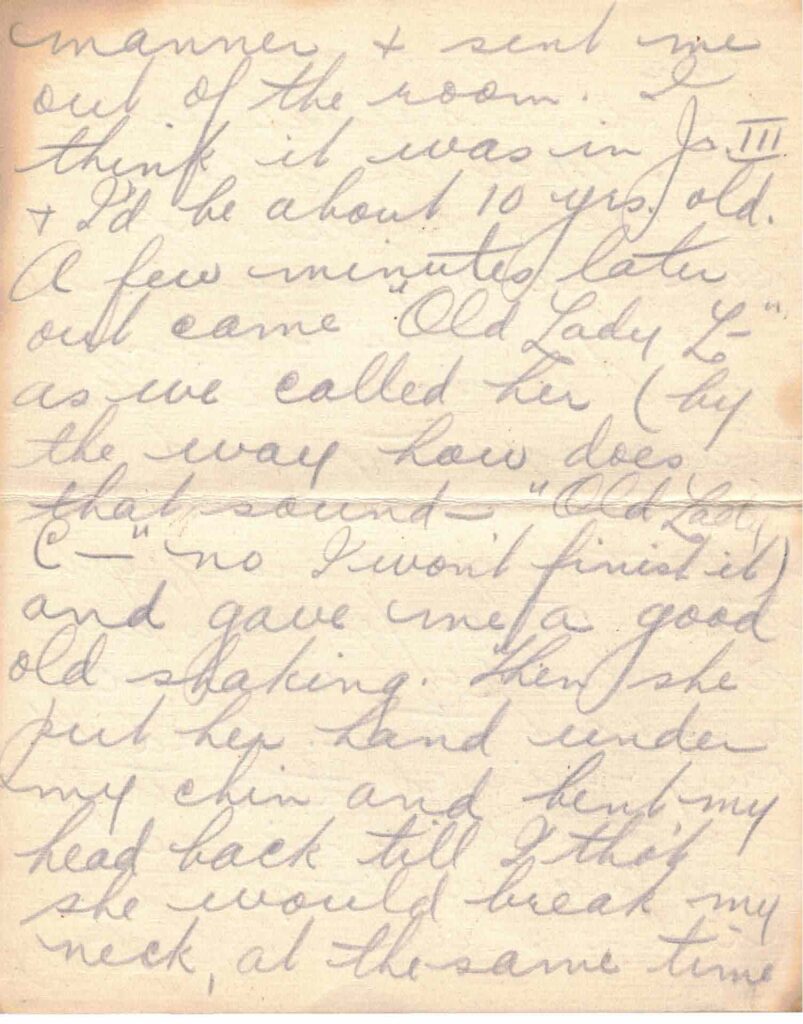 manner + sent me
out of the room. I
think it was in Jr. III
+ I'd be about 10 yrs. old.
A few minutes later
out came "Old Lady L—"
as we called her (by
the way how does
that sound — "Old Lady
C—" no I won't finish it)
and gave me a good
old shaking. Then she
put her hand under
my chin and bent my
head back till I tho't
she would break my
neck, at the same time